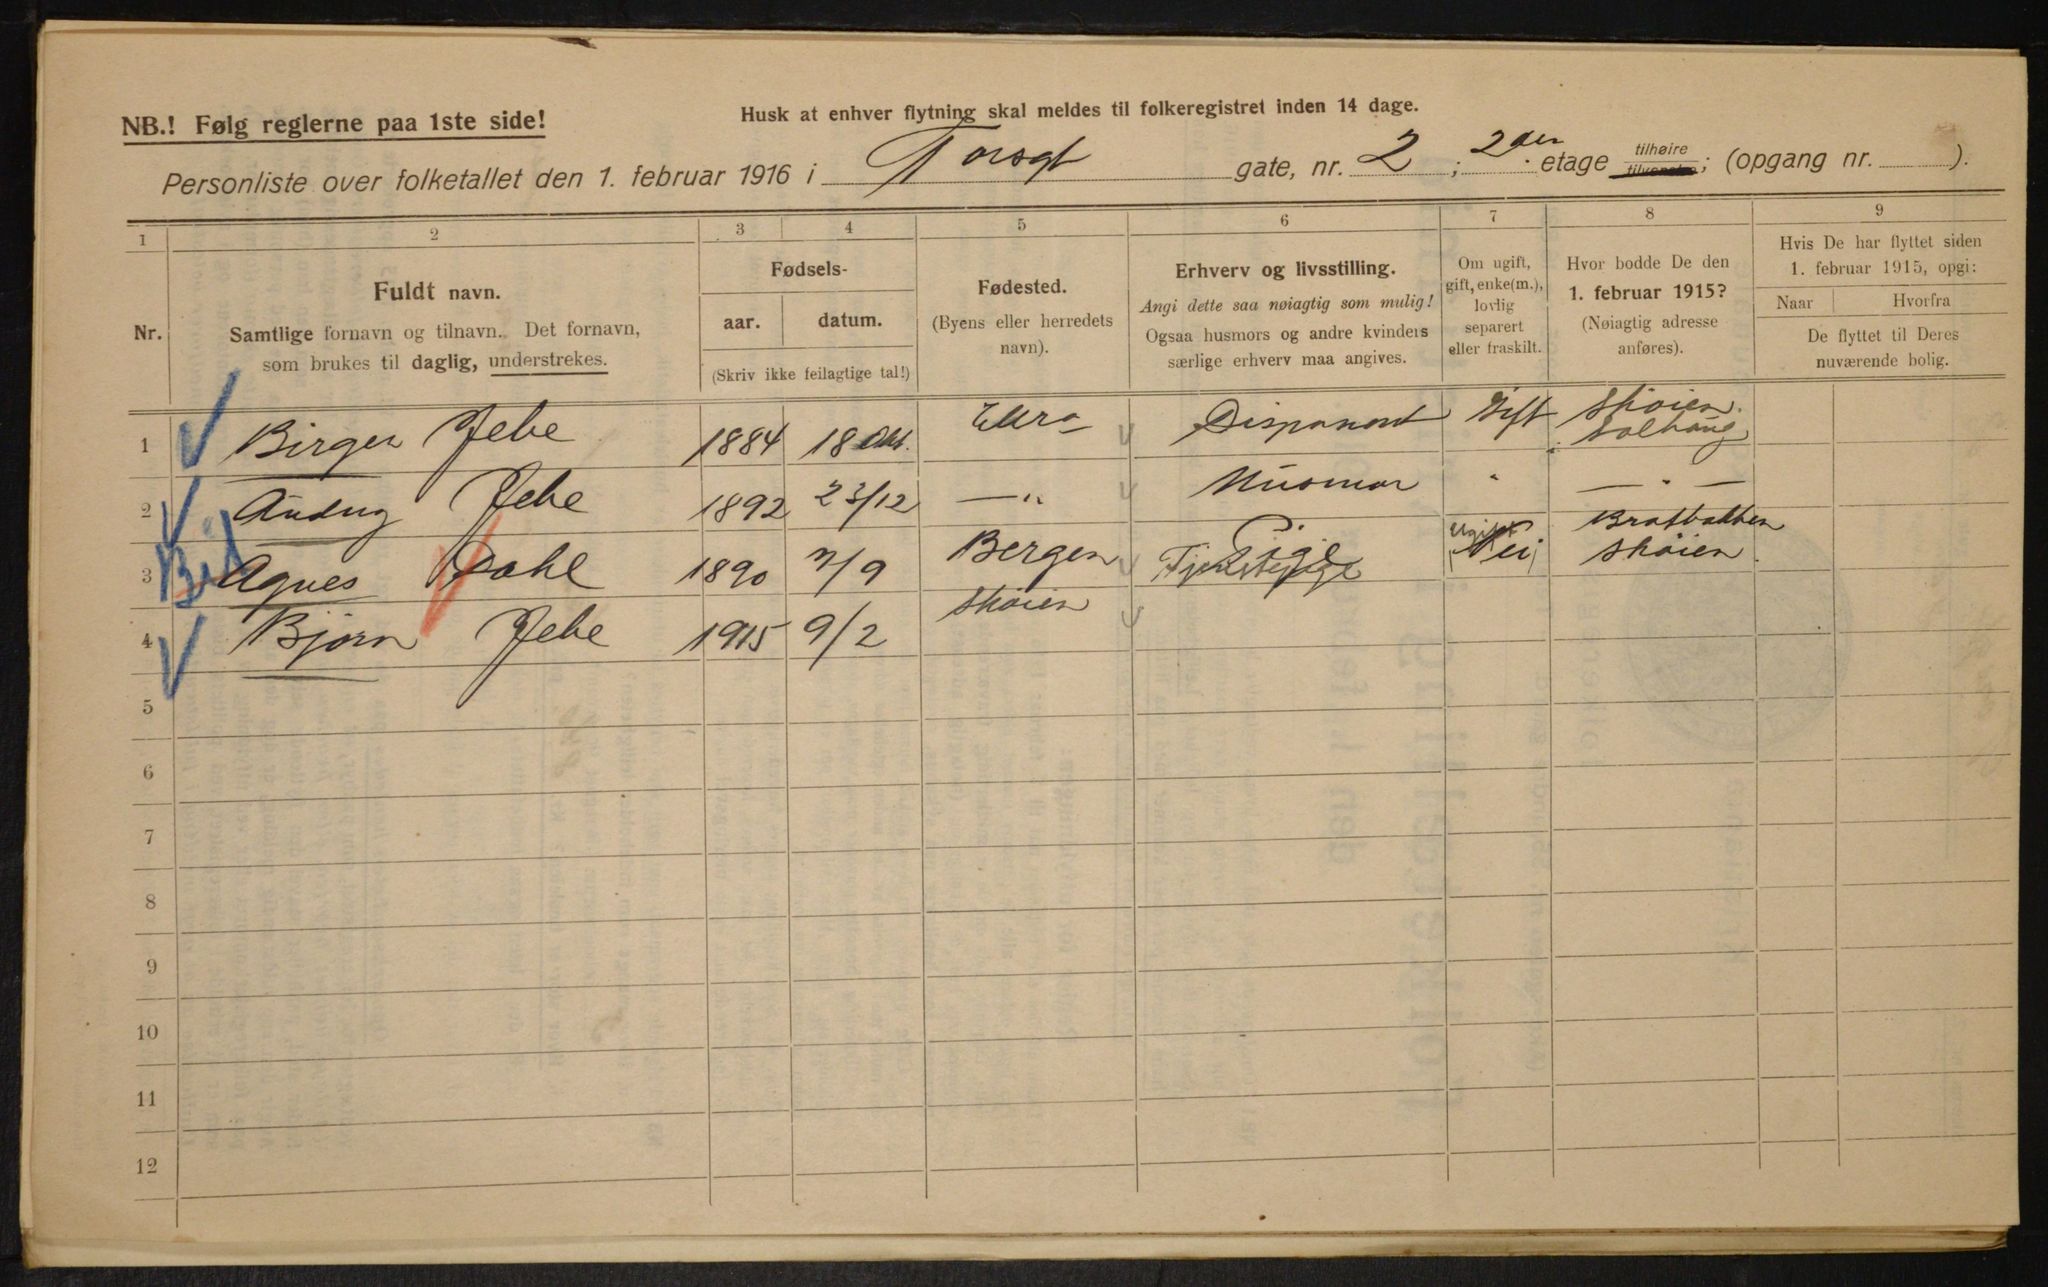 NB.! Følg reglerne paa 1ste side!
Husk at enhver flytning skal meldes til folkeregistret inden 14 dage.
Personliste over folketallet den 1. februar 1916 i Torsgt gate, nr. 2 ; 2den etage tilhøire tilvenstre ; (opgang nr. ).
1 2 3 4 5 6 7 8 9
Nr.
Fuldt navn.
Samtlige fornavn og tilnavn. Det fornavn,
som brukes til daglig, understrekes.
Fødsels-
aar. datum.
(Skriv ikke feilagtige tal!)
Fødested.
(Byens eller herredets
navn).
Erhverv og livsstilling.
Angi dette saa nøiagtig som mulig!
Ogsaa husmors og andre kvinders
særlige erhverv maa angives.
Om ugift,
gift, enke(m.),
lovlig
separert
eller fraskilt.
Hvor bodde De den
1. februar 1915?
(Nøiagtig adresse
anføres).
Hvis De har flyttet siden
1. februar 1915, opgi:
Naar Hvorfra
De flyttet til Deres
nuværende bolig.
1 Birger Jebe 1884 18 Disponent Gift Skøien
2 Jebe 1892 23/12 — " Husmor " — " —
3 Agnes Dahl 1890 9 Bergen Pige Ugift Nei Skøien
4 Bjørn Jebe 1915 9/2 Skøien
5
6
7
8
9
10
11
12